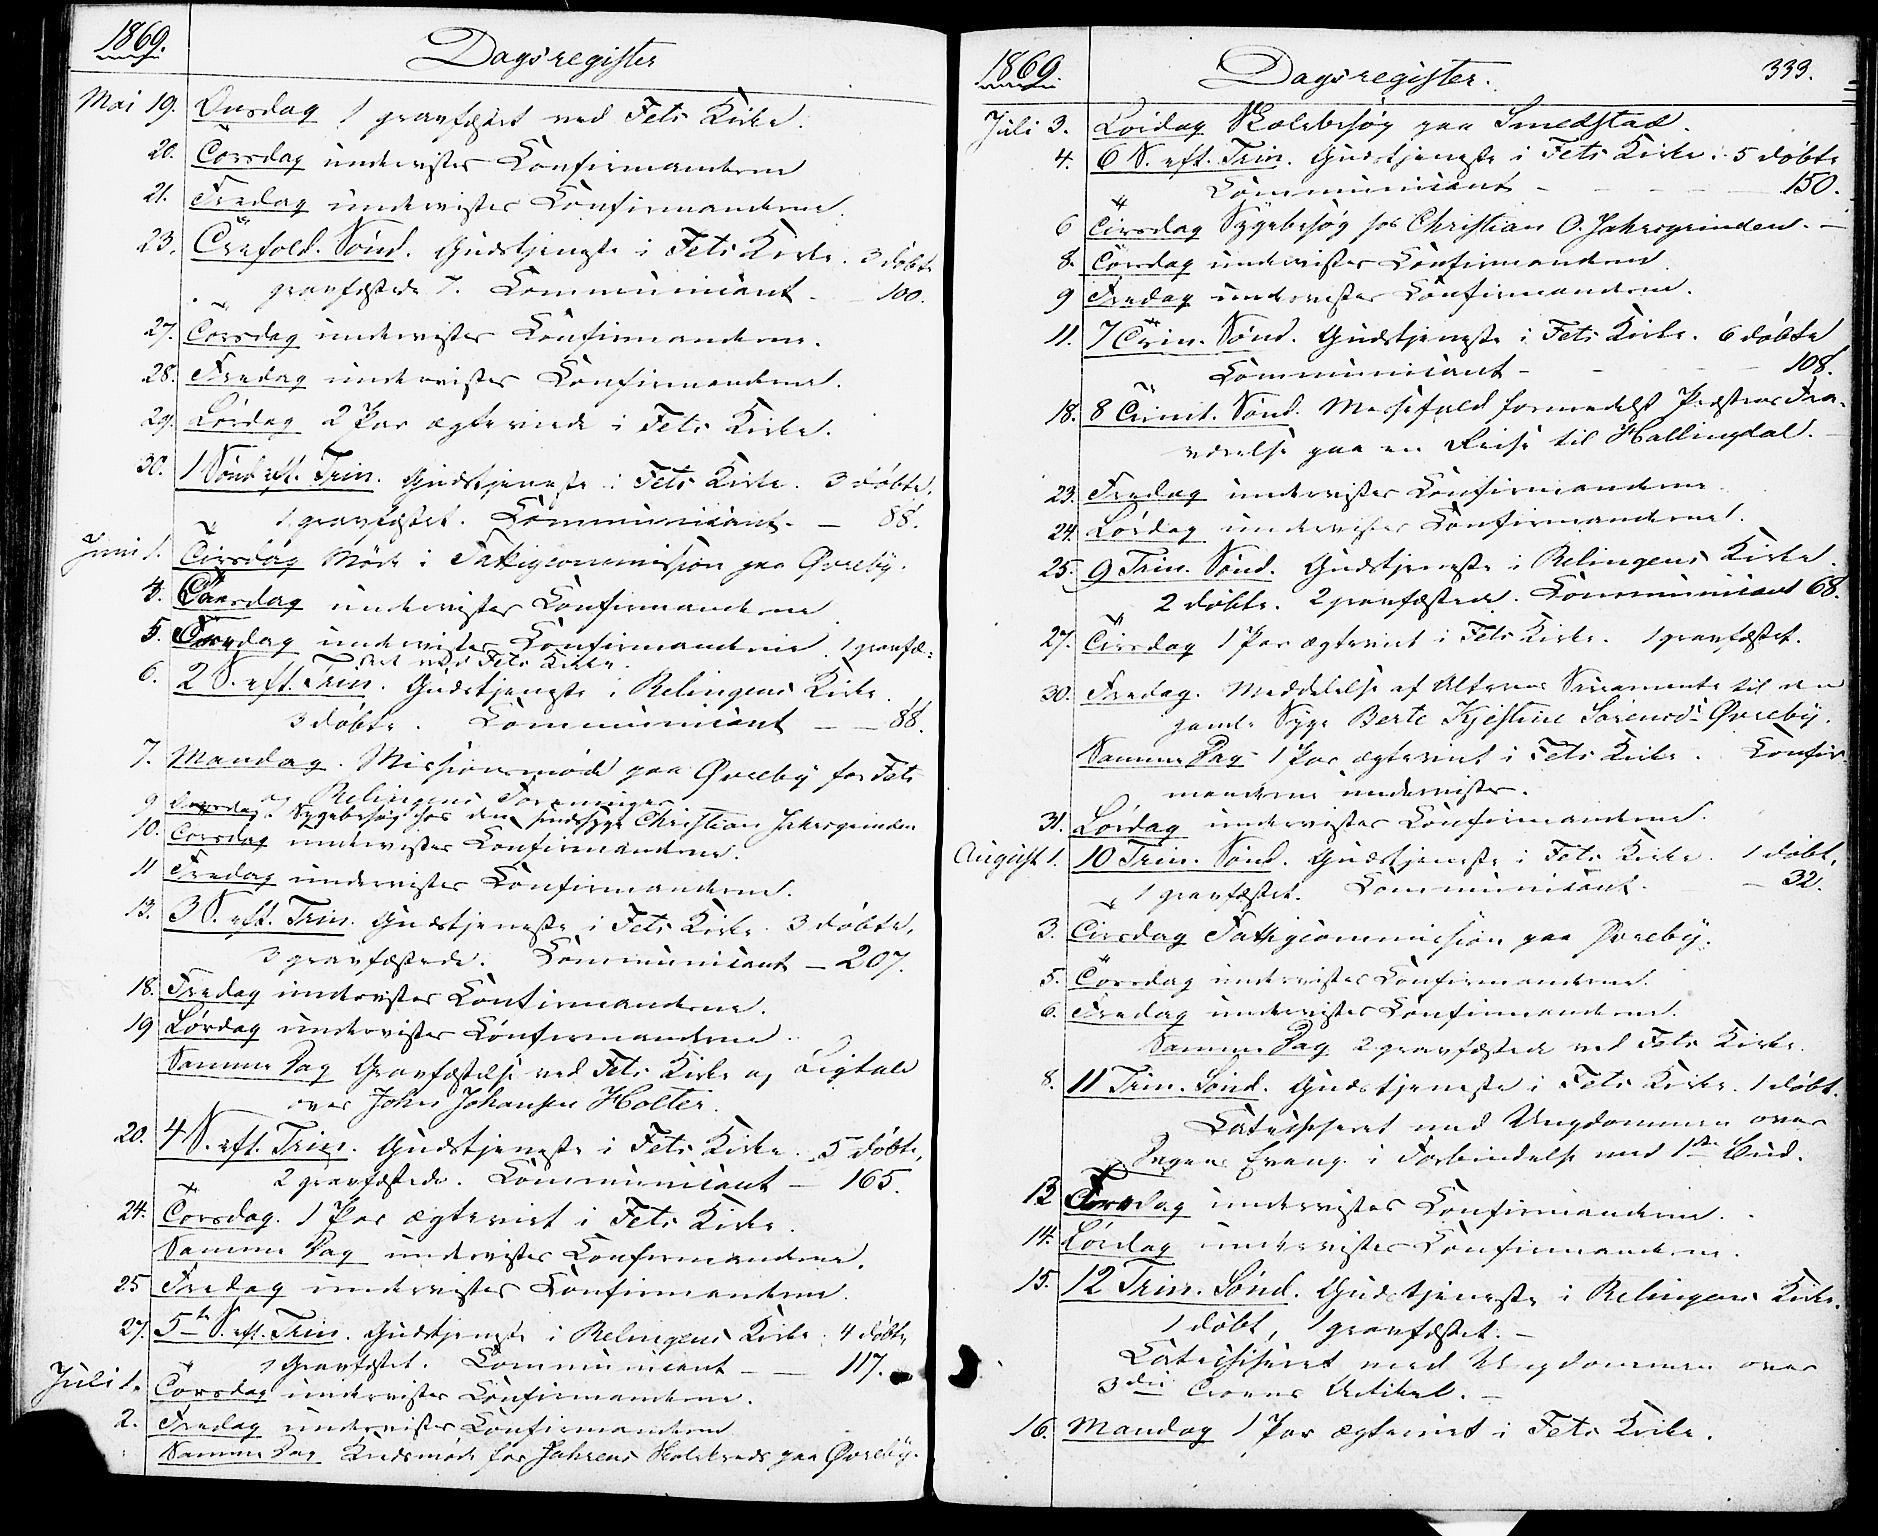 1869.
Dagsregister
Mai 19. Onsdag 1 gravfæstet ved Fets Kirke.
20. Torsdag undervistes Confirmanderne
21. Fredag undervistes Confirmanderne.
23. Trefold. Sønd. Gudstjeneste i Fets Kirke. 3 døbte
gravfæstede 7. Communicant. — 100.
27. Torsdag undervistes Confirmanderne.
28. Fredag undervistes Confirmanderne.
29. Lørdag 2 Par ægteviede i Fets Kirke.
30. 1 Sønd eft. Trin. Gudstjeneste i Fets Kirke. 3 døbte.
1 gravfæstet. Communicant. — 88.
Juni 1. Tirsdag Møde i Fattigcommission paa Øvreby.
Torsdag undervistes Confirmanderne
5. undervistes Confirmanderne. 1 gravfæ-
stet ved Fets Kirke.
6. 2 S. eft. Trin. Gudstjeneste i Relingens Kirke.
3 døbte. Communicant — — 88.
7. Mandag. Missionsmøde paa Øvreby for Fets
og Relingens Foreninger
9 Sygebesøg hos den sindssyge Christian Jahrsgrinden
10. Torsdag undervistes Confirmanderne.
11 Fredag undervistes Confirmanderne.
13. 3 S. eft. Trin. Gudstjeneste i Fets Kirke. 3 døbte,
3 gravfæstede. Communicant — 207.
18. Fredag undervistes Confirmanderne.
19 Lørdag undervistes Confirmanderne.
Samme Dag Gravfæstelse ved Fets Kirke og Ligtale
over Johs Johansen Holter.
20. 4 S. eft. Trin. Gudstjeneste i Fets Kirke. 5 døbte,
2 gravfæstede. Communicant — 165.
24. Torsdag. 1 Par ægteviet i Fets Kirke.
Samme Dag undervistes Confirmanderne.
25 Fredag undervistes Confirmanderne.
27. 5te S. eft. Trin. Gudstjeneste i Relingens Kirke. 4 døbte
1 Gravfæstet. Communicant — — 117.
Juli 1. Torsdag undervistes Confirmanderne.
2. Fredag undervistes Confirmanderne
Samme Dag Kredsmøde for Jahrens Skolekreds paa Øvreby.
1869.
Dagsregister.
333.
Juli 3. Lørdag Skolebesøg paa Smedstad.
4. 6 S. eft. Trin. Gudstjeneste i Fets Kirke. 5 døbte
Communicant — — — 150.
6 Tirsdag Sygebesøg hos Christian O. Jahrsgrinden. —
8. Torsdag undervistes Confirmanderne
9 Fredag undervistes Confirmanderne.
11. 7 Trin. Sønd. Gudstjeneste i Fets Kirke. 6 døbte
Communicant — — — 108.
18. 8 Trinit. Sønd. Messefald formedelst Præstens Fra-
værelse paa en Reise til Hallingdal. —
23. Fredag undervistes Confirmanderne
24. Lørdag undervistes Confirmanderne.
25. 9 Trin. Sønd. Gudstjeneste i Relingens Kirke.
2 døbte. 2 gravfæstede. Communicant 68.
27. Tirsdag 1 Par ægteviet i Fets Kirke. 1 gravfæstet.
30. Fredag. Meddelelse af Alterens Sacramente til den
gamle Syge Berte Kjestine Sørensd. Øvreby.
Samme Dag 1 Par ægteviet i Fets Kirke. Confir-
manderne undervistes.
31. Lørdag undervistes Confirmanderne.
August 1. 10 Trin. Sønd. Gudstjeneste i Fets Kirke. 1 døbt,
1 gravfæstet. Communicant. — 32.
3. Tirsdag Fattigcommission paa Øvreby.
5. Torsdag undervistes Confirmanderne.
6. Fredag undervistes Confirmanderne.
Samme Dag 2 gravfæstede ved Fets Kirke.
8. 11 Trin. Sønd. Gudstjeneste i Fets Kirke. 1 døbt.
Catechiseret med Ungdommen over
Dagens Evang. i Forbindelse med 1ste Bud.
13 Fredag undervistes Confirmanderne.
14. Lørdag undervistes Confirmanderne.
15. 12 Trin. Sønd. Gudstjeneste i Relingens Kirke.
1 døbt, 1 gravfæstet. —
Catechiseret med Ungdommen over
3die Troens Artikel. —
16. Mandag 1 Par ægteviet i Fets Kirke.